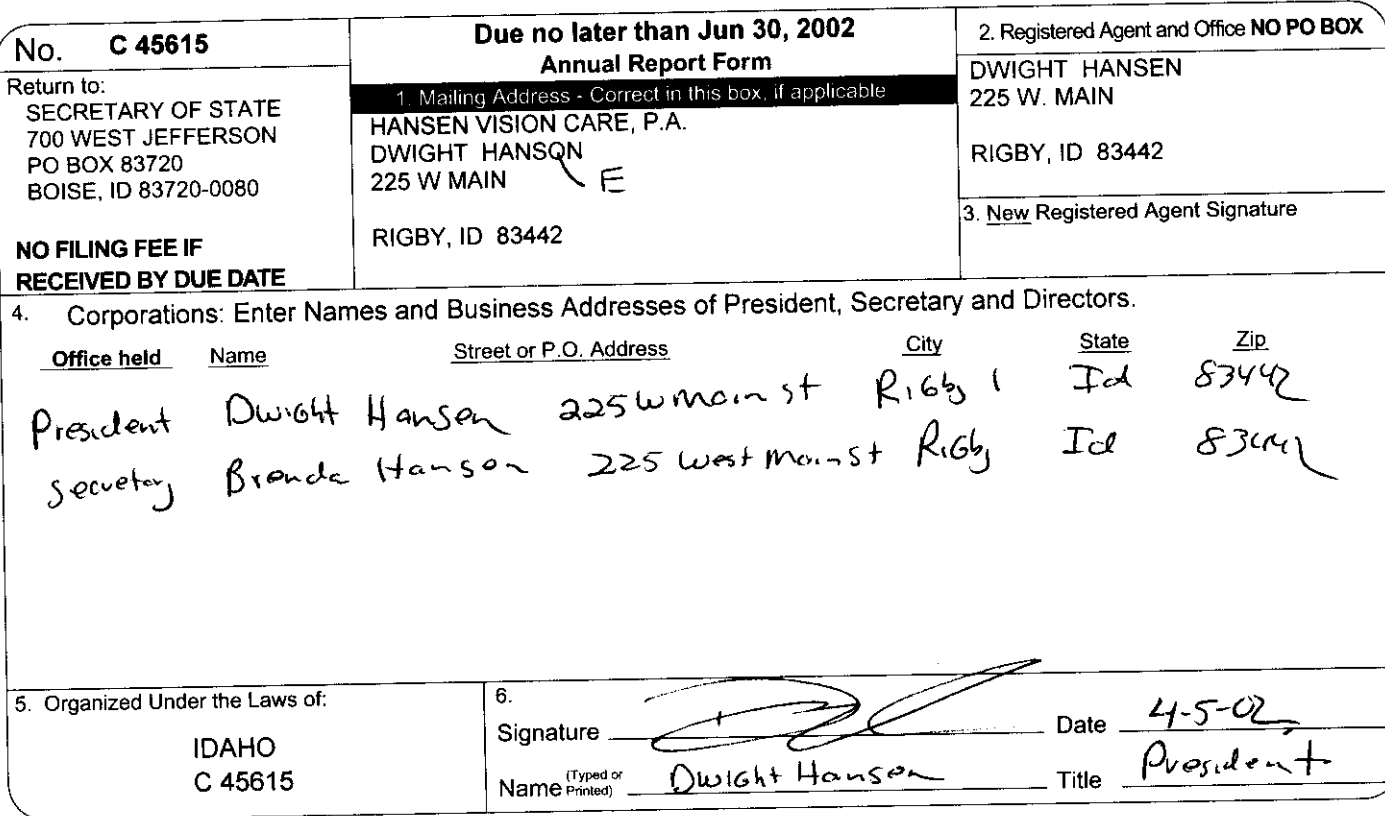 No. C 45615
Return to:
SECRETARY OF STATE
700 WEST JEFFERSON
PO BOX 83720
BOISE, ID 83720-0080
NO FILING FEE IF
RECEIVED BY DUE DATE
Due no later than Jun 30, 2002
Annual Report Form
1. Mailing Address - Correct in this box, if applicable
HANSEN VISION CARE, P.A.
DWIGHT HANSON
E
225 W MAIN
RIGBY, ID 83442
2. Registered Agent and Office NO PO BOX
DWIGHT HANSEN
225 W. MAIN
RIGBY, ID 83442
3. New Registered Agent Signature
4. Corporations: Enter Names and Business Addresses of President, Secretary and Directors.
Office held Name Street or P.O. Address City State Zip
President Dwight Hansen 225 W Main st Rigby Id 83442
Secretary Brenda Hansen 225 West Main St Rigby Id 83442
5. Organized Under the Laws of:
IDAHO
C 45615
6.
Signature Date 4-5-02
Name (Typed or Printed) Dwight Hansen Title President